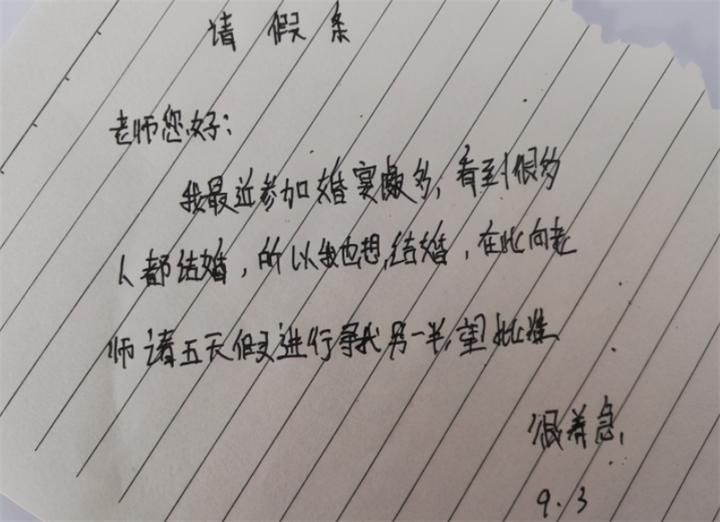 请假条
老师您好：
我最近参加婚宴颇多，看到很多
人都结婚，所以我也想结婚，在此向老
师请五天假进行寻找另一半，望批准
很着急
9.3